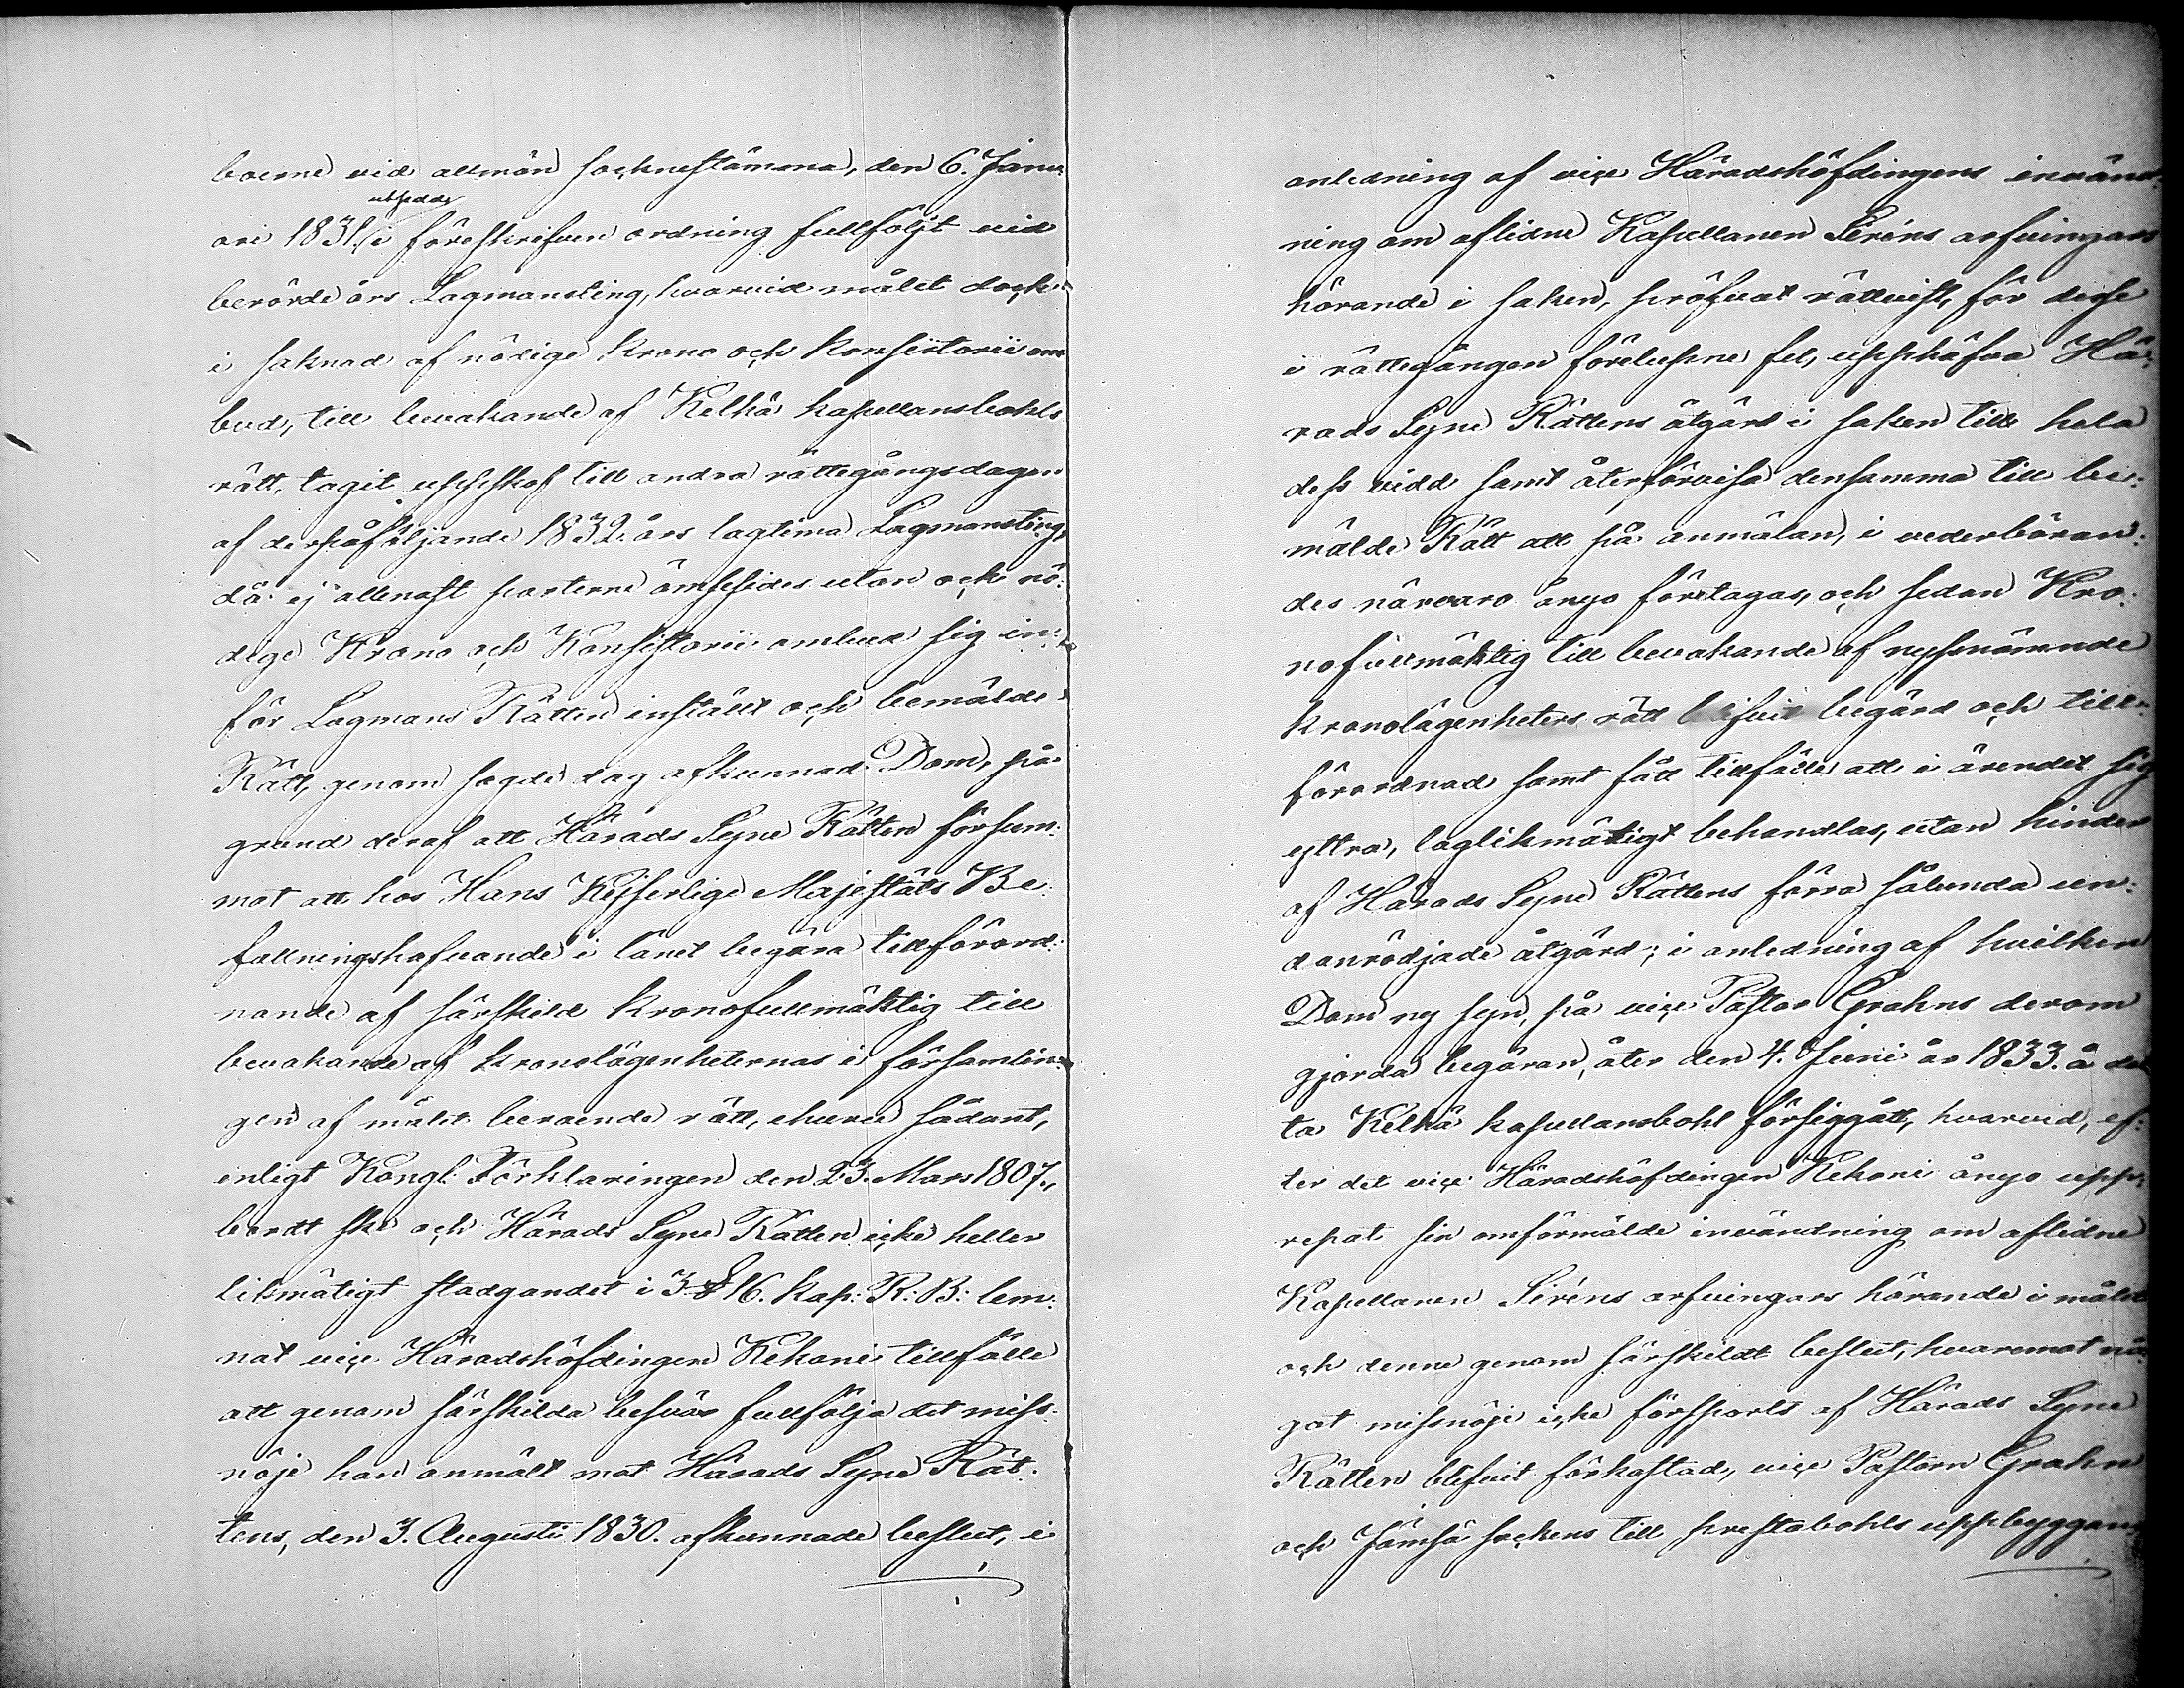 boerne vid allmän socknestämma, den 6. Janu-
utsedde
ari 1831. i föreskrifven ordning fullföljt vid
berörde års Lagmansting, hvarvid målet dock
i saknad af nödige krono och konsistorii om-
bud, till bevakande af Kelhä kapellansbohls
rätt, tagit uppskof till andra rättegångsdagen
af derpåföljande 1832. års lagtima Lagmansting,
då ej allenast parterne ömsesides utan ock nö:
dige Krono och Konsistorii ombud sig in:
för Lagmans Rätten inställt och bemälde
Rätt, genom sagde dag afkunnad Dom, på
grund deraf att Härads Syne Rätten försum:
mat att hos Hans Kejserlige Majestäts Be:
fallningshafvande i länet begära tillförord:
nande af särskild kronofullmäktig till
bevakande af kronolägenheternas i församlin:
gen af målet beroende rätt, ehuru sådant,
enligt Kongl: Förklaringen den 23. Mars 1807.,
bordt ske och Härads Syne Rätten icke heller
likmätigt stadgandet i 3 § 16. kap: R: B: lem:
nat vice Häradshöfdingen Kekoni tillfälle
att genom särskilda besvär fullfölja det miss:
nöje han anmält mot Härads Syne Rät:
tens, den 3. Augusti 1830. afkunnade beslut, i
anledning af vice Häradshöfdingens invänd:
ning om aflidne Kapellanen Siréns arfvingars
hörande i saken, pröfvat rättvist, för desse
i rättegången förelupne fel, upphäfva Hä:
rads Syne Rättens åtgärd i saken till hela
dess vidd samt återförvisa densamma till be:
mälde Rätt att på anmälan, i vederböran:
des närvaro ånyo företagas, och sedan Kro:
nofullmäktig till bevakande af nyssnämnde
kronolägenheters rätt blifvit begärd och till:
förordnad samt fått tillfälle att i ärendet sig
yttra, laglikmätigt behandlas, utan hinder
af Härads Syne Rättens förra sålunda un:
danrödjade åtgärd; i anledning af hvilken
Dom ny syn, på vice Pastor Grahns derom
gjorda begäran, åter den 4. Juni år 1833. å det
ta Kelhä kapellansbohl försiggått, hvarvid, ef:
ter det vice Häradshöfdingen Kekoni ånyo upp:
repat sin omförmälde invändning om aflidne
Kapellanen Siréns arfvingars hörande i målet
och denne genom särskildt beslut, hvaremot nå:
got missnöje icke försports af Härads Syne
Rätten blifvit förkastad, vice Pastorn Grahn
och Jämsä sockens till prestabohls uppbyggan: